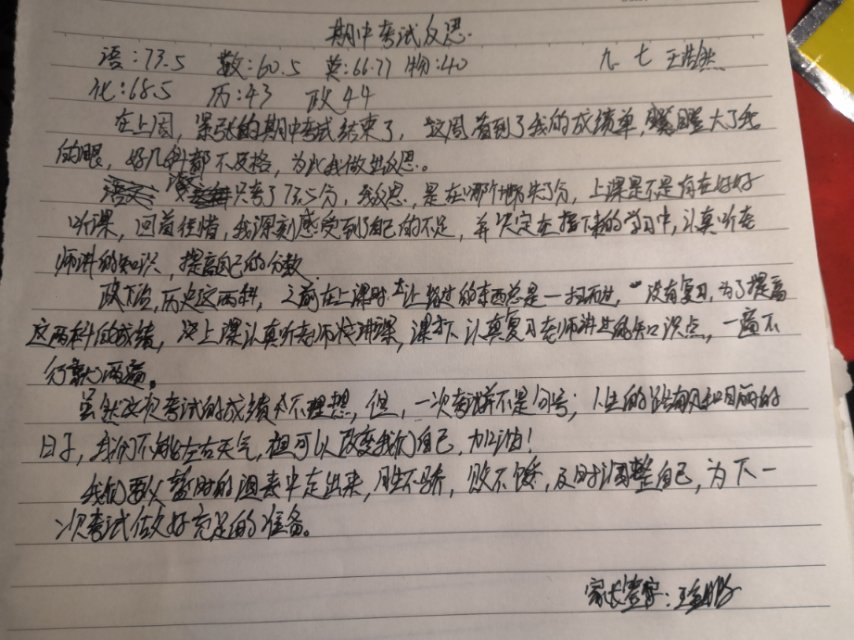 期中考试反思
语:73.5 数:60.5 英:66.77 物:40 九 七 王浩然
化:68.5 历:43 政44
在上周,紧张的期中考试结束了,这周看到了我的成绩单,瞪大了我
的眼,好几科都不及格,为此我做出反思。
只考了73.5分,我反思,是在哪个地方失了分,上课是不是有在好好
听课,回首往惜,我深刻感受到了自己的不足,并决定在接下来的学习中,认真听老
师讲的知识,提高自己的分数
政治,历史这两科,之前在上课时 让 的东西总是一扫而过,没有复习,为了提高
这两科的成绩,上课认真听老师 讲课,课下认真复习老师讲 知识点,一遍不
行就两遍。
虽然这次考试的成绩不理想,但,一次考 不是句号;人生的 和 丽的
日子,我们不能左右天气,但可以改变我们自己,加油!
我们要从暂时的 中走出来,胜不骄,败不馁,及时调整自己,为下一
次考试做好充足的准备。
家长签字: